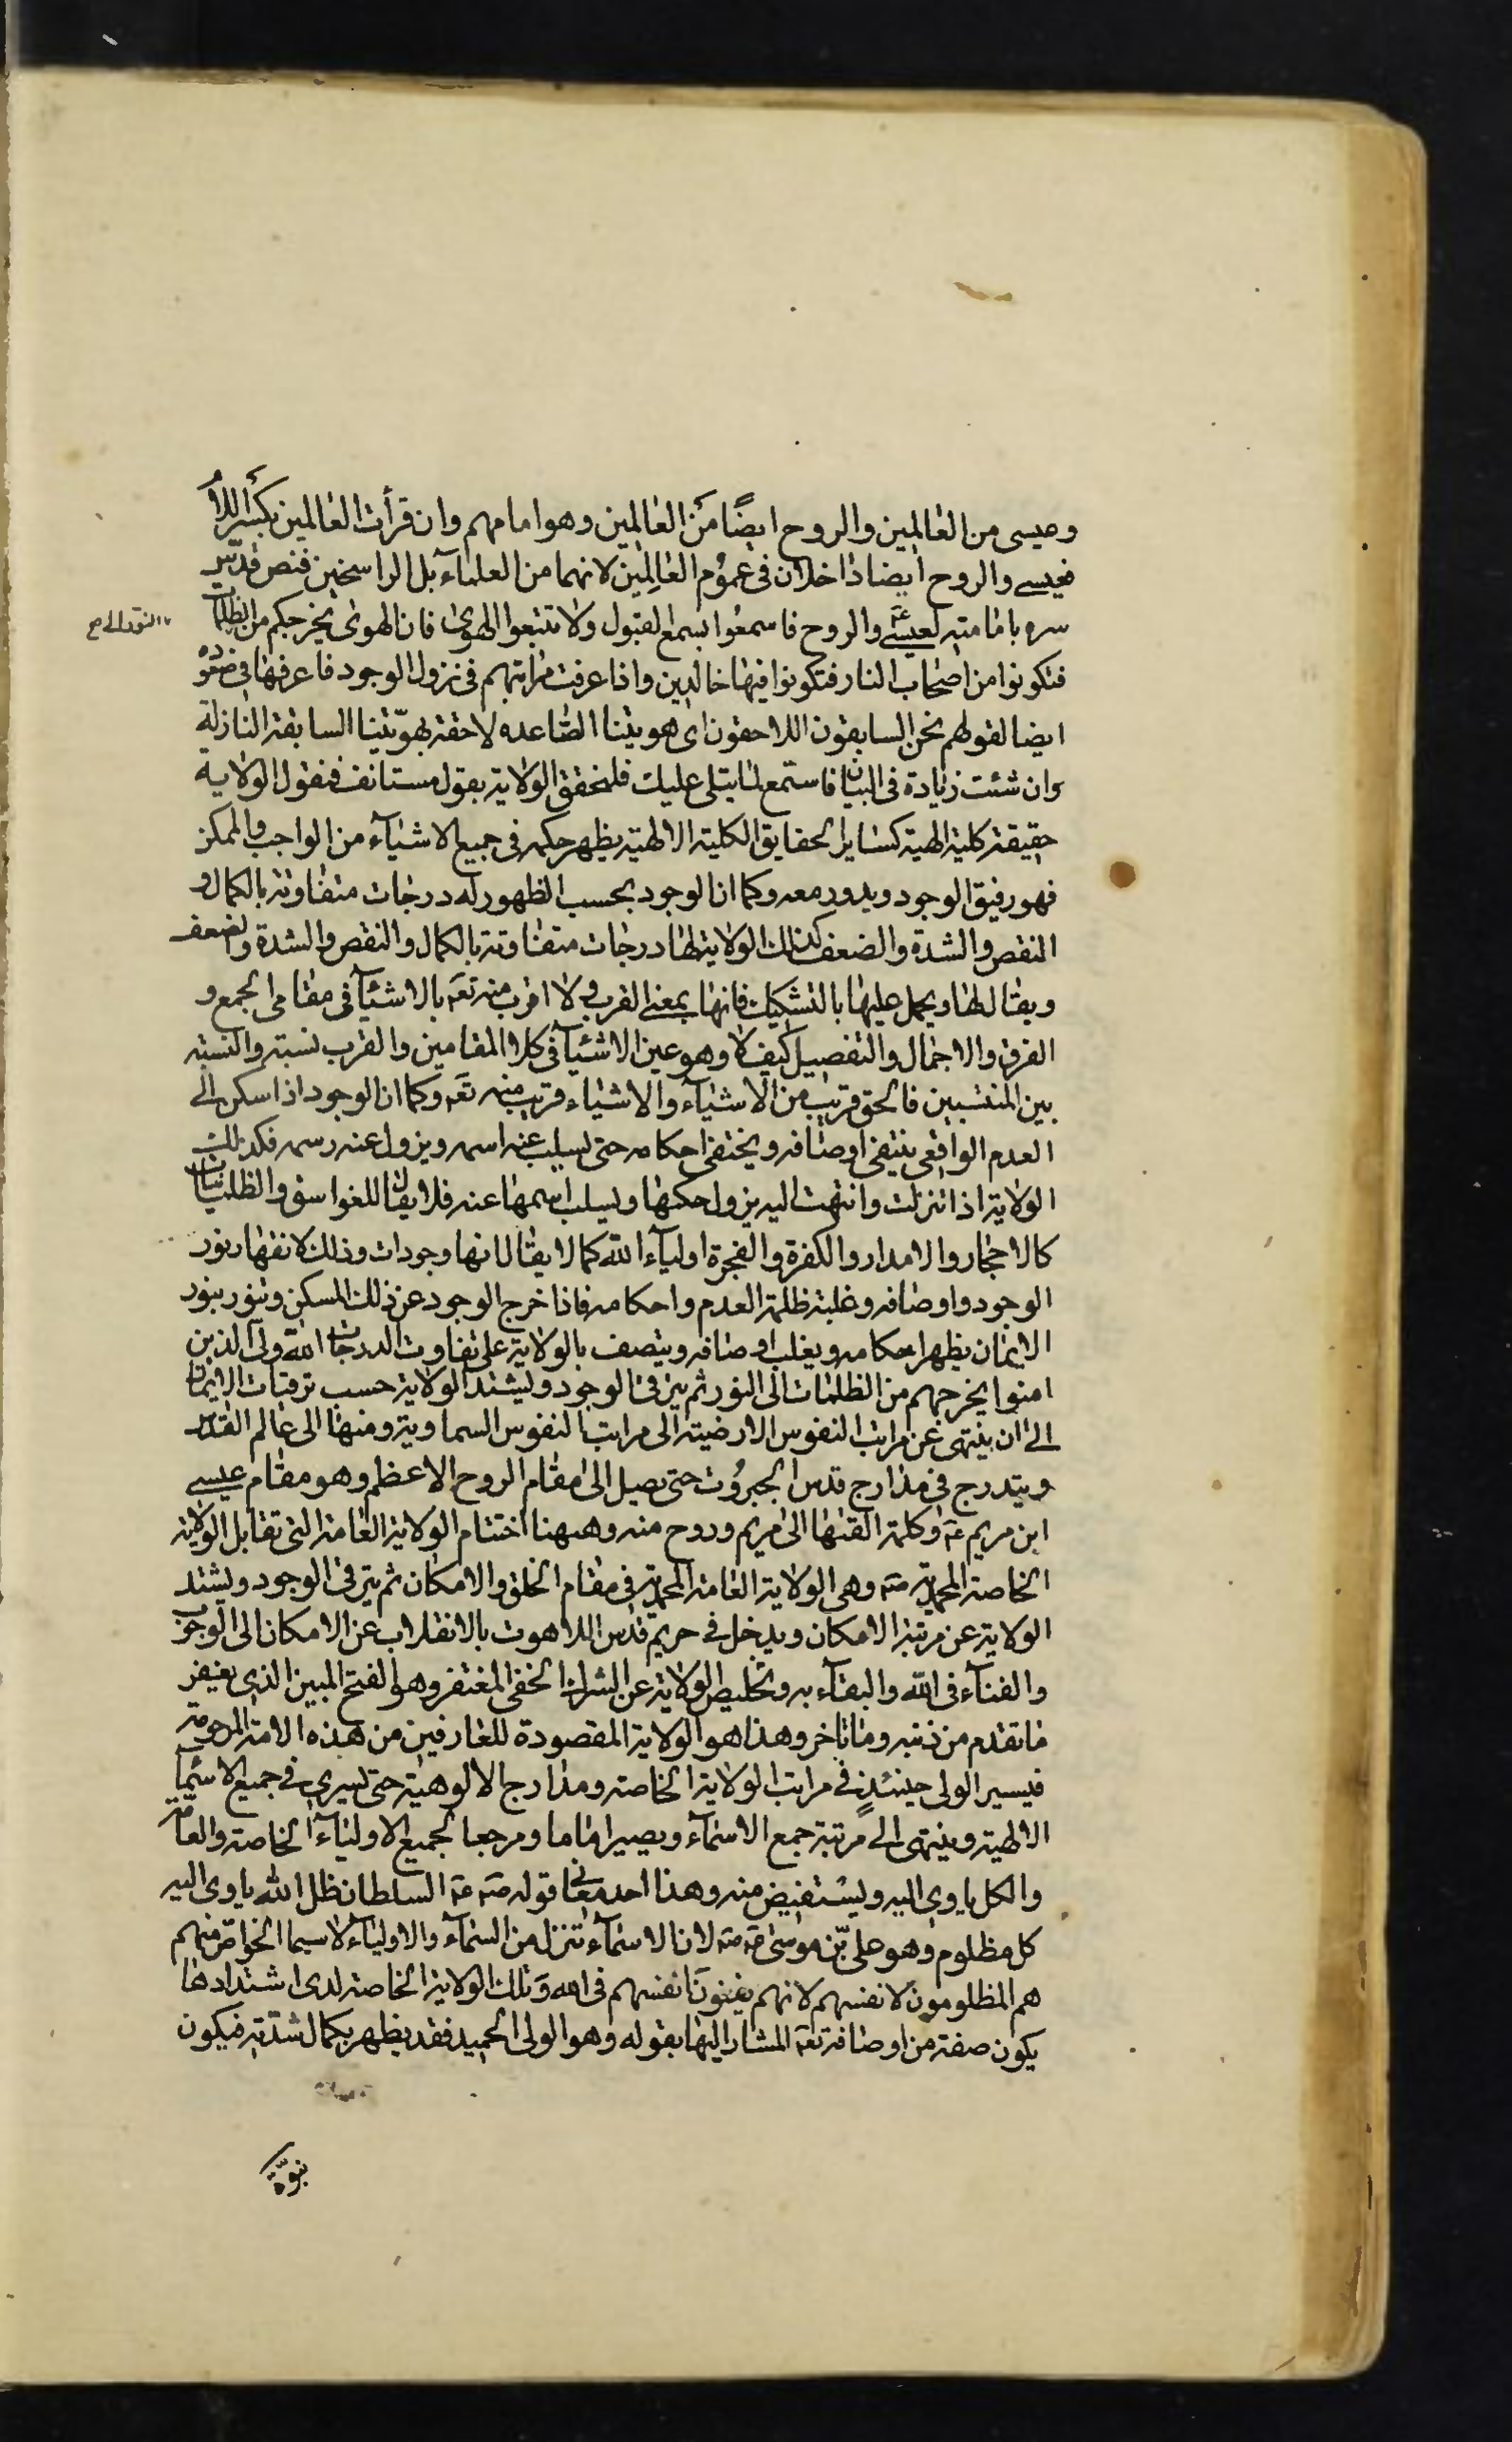 وعيسى من العالمين والروح ايضًا من العالمين وهو امامهم وان قرأت العالمين بكسر اللام
فعيسى والروح ايضا داخلان فى عموم العالِمين لانهما من العلماء بل الراسخين فنص قدّس
سره بامامته لعيسى ع والروح فاسمعوا بسمع القبول ولا تتبعوا الهوى فان الهوى يخرجكم من النور الى الظلمات
فتكونوا من اصحاب النار فتكونوا فيها خالدين واذا عرفت مراتبهم فى نزول الوجود فاعرفها فى صعوده
ايضا لقولهم نحن السابقون اللاحقون اى هويتنا الصاعده لاحقة بهويّتنا السابقة النازلة
وان شئت زيادة فى البيان فاستمع لما يتلى عليك فلنحقق الولاية بقول مستانف فنقول الولاية
حقيقة كلية الهية كساير الحقايق الكلية الالهية يظهر حكمه فى جميع الاشياء من الواجب والممكن
فهو رفيق الوجود ويدور معه وكما ان الوجود بحسب الظهور له درجات متفاوتة بالكمال و
النقص والشدة والضعف كذلك الولاية لها درجات متفاوتة بالكمال والنقص والشدة والضعف
ويقال لها ويحمل عليها بالتشكيك فانها بمعنى القرب ولا اقرب منه تعه بالاشيآ فى مقامى الجمع و
الفرق والاجمال والتفصيل كيف لا وهو عين الاشيآ فى كلا المقامين والقرب نسبة والنسبة
بين المنتسبين فالحق قريب من الاشياء والاشياء قريب منه تعه وكما ان الوجود اذا سكن الى
العدم الواقعى ينتفى اوصافه ويختفى احكامه حتى يسلب عنه اسمه ويزول عنه رسمه فكذلك
الولاية اذا تنزلت وانتهت اليه يزول حكمها ويسلب اسمها عنه فلا يقال للغواسق والظلمانيات
كالاحجار والامدار والكفرة والفجرة اولياء الله كما لا يقال انها وجودات وذلك لانقهار نور
الوجود واوصافه وغلبة ظلمة العدم واحكامه فاذا خرج الوجود عن ذلك المسكن وتنور بنور
الايمان يظهر احكامه ويغلب اوصافه ويتصف بالولاية على تفاوت الدرجات الله ولى الذين
امنوا يخرجهم من الظلمات الى النور ثم يترقى الوجود ويشتد الولاية حسب ترقيات الايمان
الى ان ينتهى عن مراتب النفوس الارضية الى مراتب النفوس السماوية ومنها الى عالم القدس
ويتدرج فى مدارج قدس الجبروت حتى يصل الى مقام الروح الاعظم وهو مقام عيسى
ابن مريم ع وكلمة القيها الى مريم وروح منه وههنا اختتام الولاية العامة التى تقابل الولاية
الخاصة المحمدية صه وهى الولاية العامة المحمدية فى مقام الخلق والامكان ثم يترقى الوجود ويشتد
الولاية عن مرتبة الامكان ويدخل فى حريم قدس اللاهوت بالانقلاب عن الامكان الى الوجوب
والفناء فى الله والبقاء به وتخليص الولاية عن الشرك الخفى المغتفر وهو الفتح المبين الذى يغفر
ما تقدم من ذنبه وما تاخر وهذا هو الولاية المقصودة للعارفين من هذه الامة المرحومة
فيسير الولى حينئذٍ فى مراتب الولاية الخاصة ومدارج الالوهية حتى يسرى فى جميع الاسماء
الالهية وينتهى الى مرتبة جمع الاسماء ويصير اماما ومرجعا لجميع الاولياء الخاصة والعامّة
والكل ياوى اليه ويستفيض منه وهذا احد معانى قوله صه عه السلطان ظل الله ياوى اليه
كل مظلوم وهو على بّن موسى صه لان الاسماء تنزل من السماء والاولياء لاسيما الخواصّ منهم
هم المظلومون لانفسهم لانهم يفنون انفسهم فى الله وتلك الولاية الخاصة لدى اشتدادها
يكون صفة من اوصافه تعه المشار اليها بقوله وهو الولى الحميد فقد يظهر بكمال شدّته فيكون
نبوّة